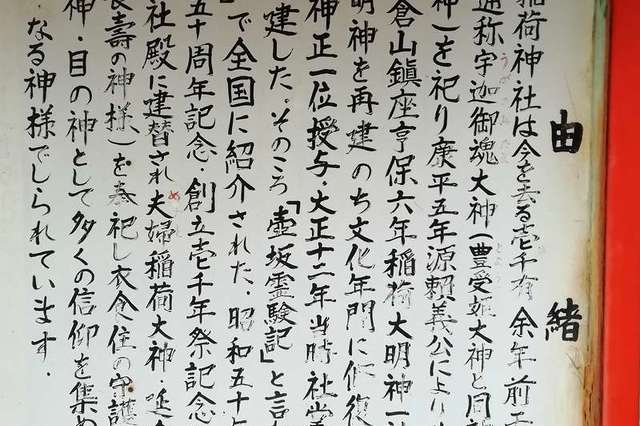 由緒
稲荷神社は今を去る壱千有余年前
通称宇迦御魂大神(豊受姫大神と同神
神)を祀り康平五年源頼義公により
倉山鎮座享保六年稲荷大明神一社
明神を再建のち文化年間に修復
神正一位授与・大正十二年当時社掌
建した。そのころ「壺坂霊験記」と言
」で全国に紹介された.昭和五十
五十周年記念・創立壱千年祭記念
社殿に建替され夫婦稲荷大神・延
長壽の神様)を奉祀し衣食住の守護
神・目の神として多くの信仰を集め
なる神様でしられています.